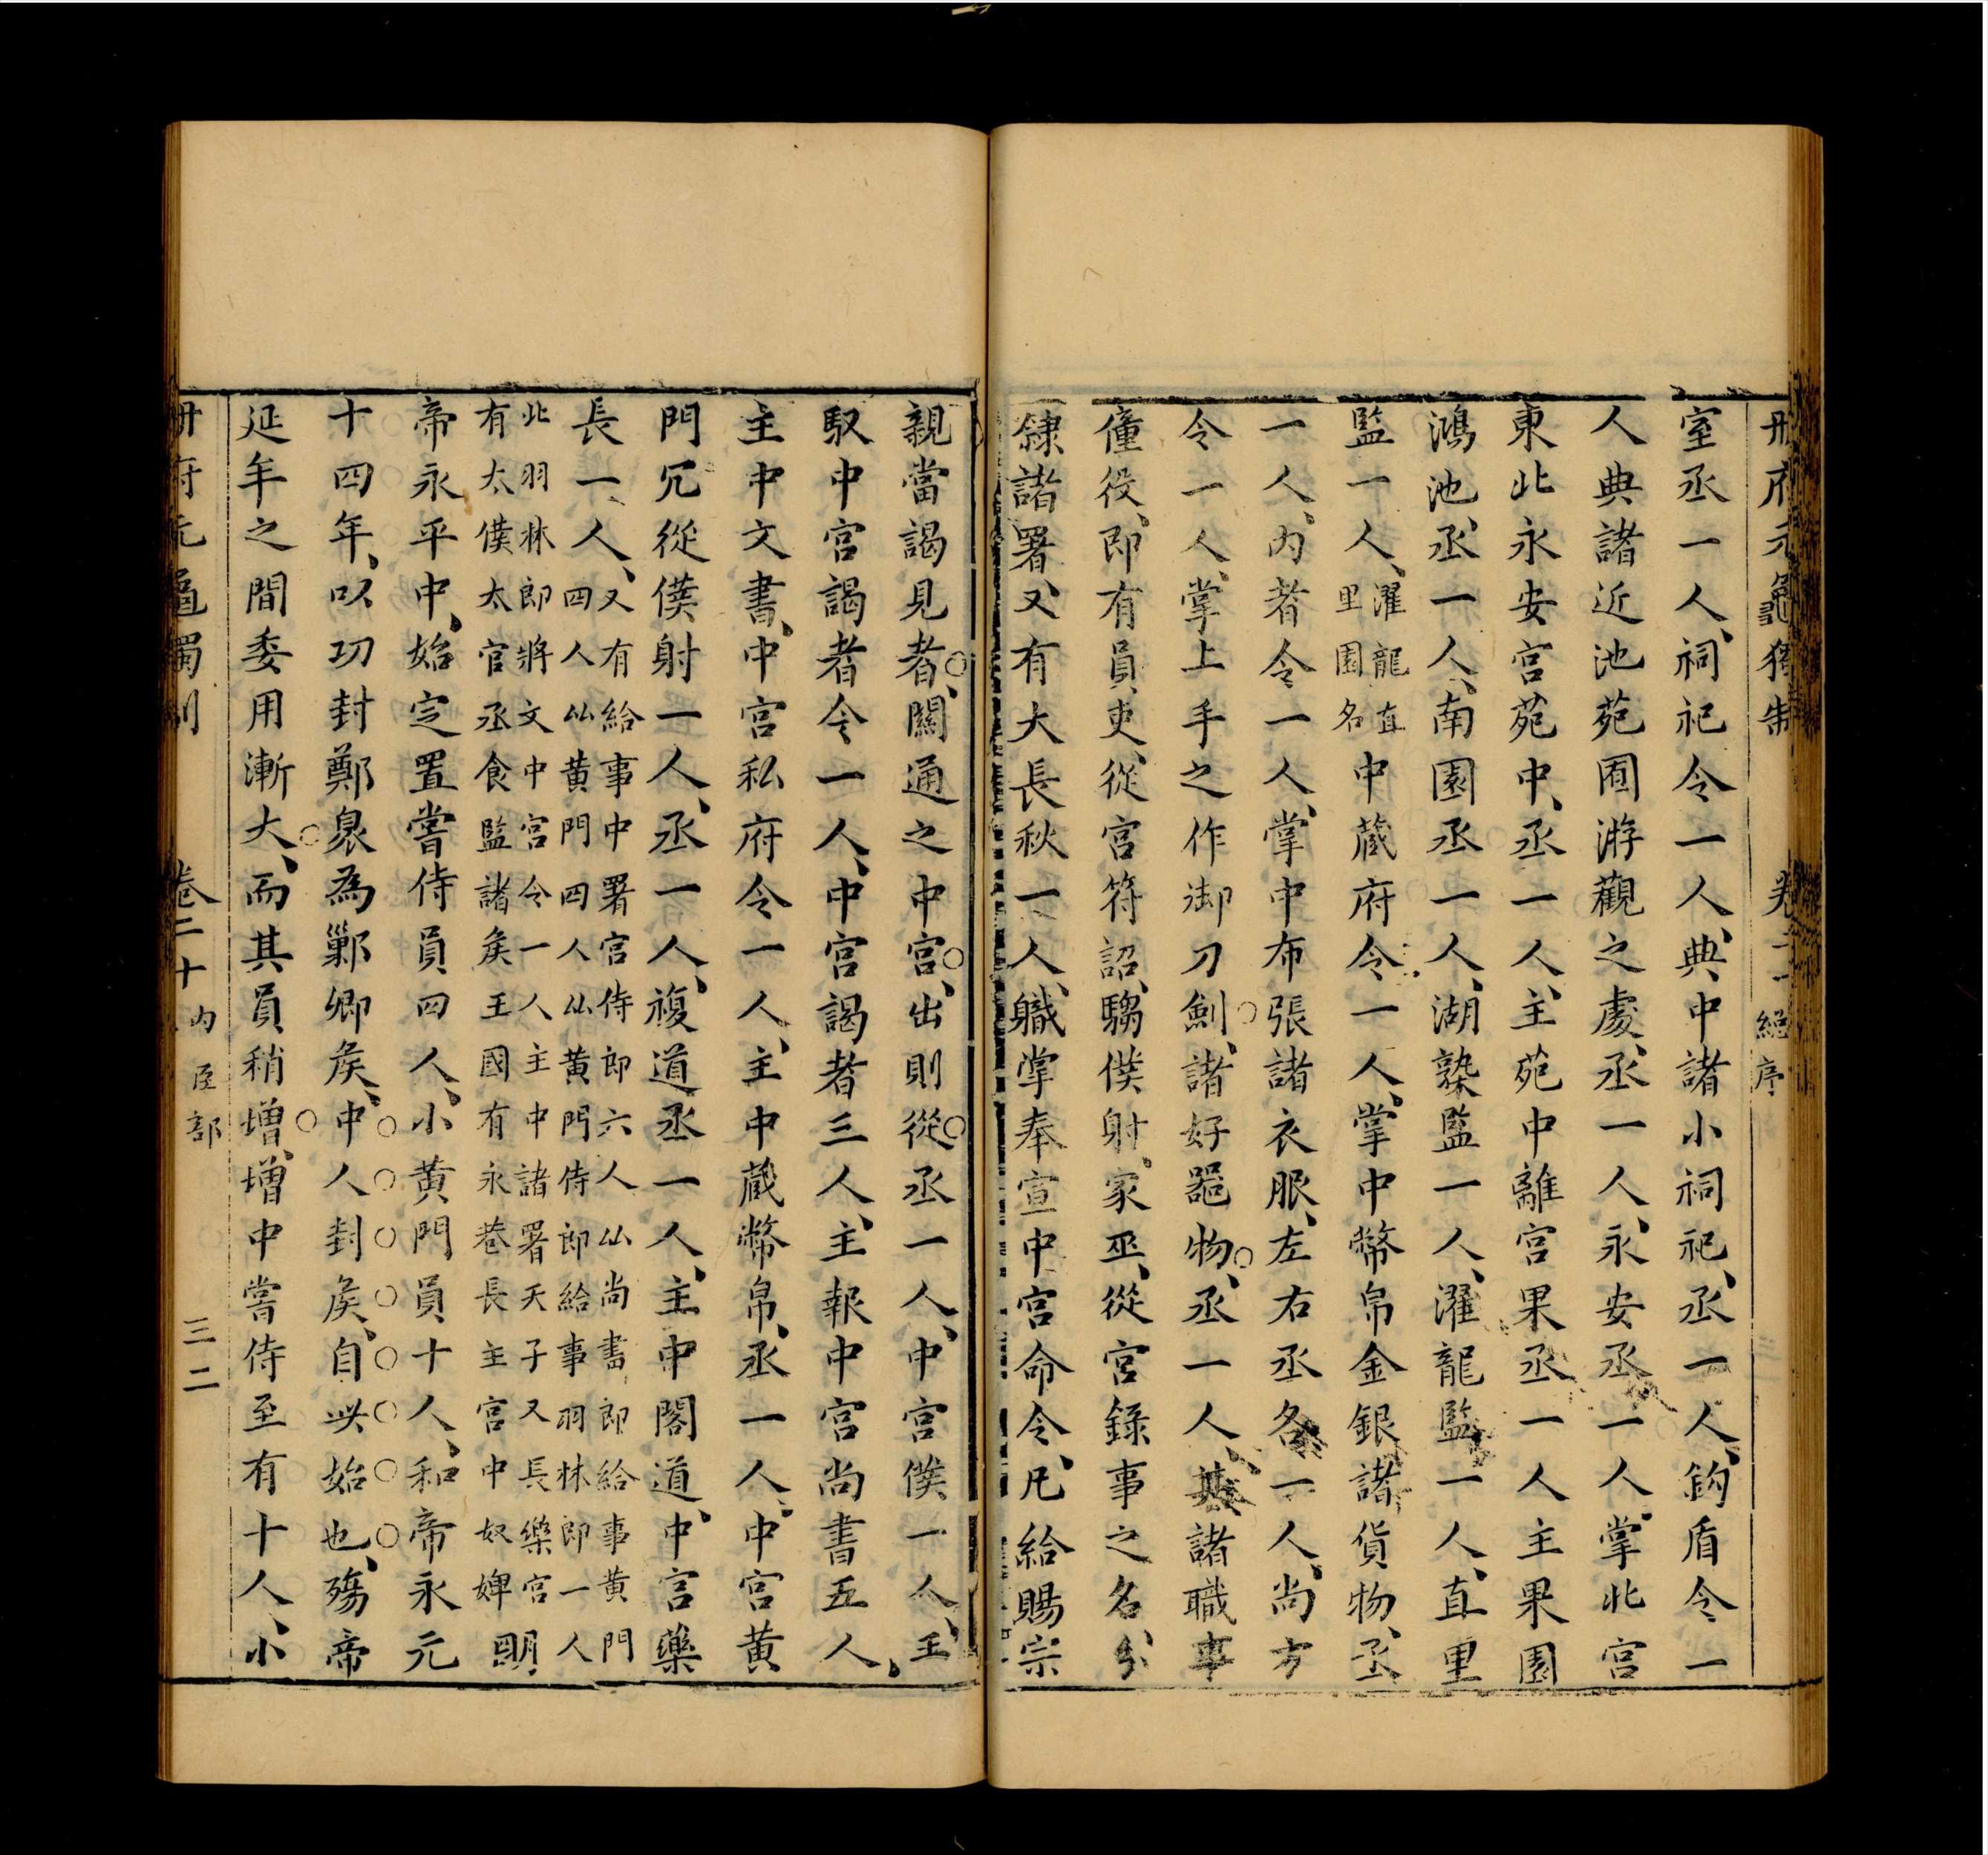 冊府元龜獨制 卷二十 總序
室丞一人、祠祀令一人、典中諸小祠祀、丞一人、鈎盾令一
人典諸近池苑囿游觀之處、丞一人、永安丞一人、掌北宮
東北永安宮苑中、丞一人、主苑中離宮果丞一人主果園
鴻池、丞一人、南園丞一人、湖㯮監一人、濯龍監一人、直里
監一人、濯龍直里園名中藏府令一人、掌中幣帛金銀諸貨物、丞
一人、內者令一人、掌中布張諸衣服、左右丞各一人、尚方
令一人、掌上手之作御刀劍、諸好噐物、丞一人、其諸職事
僮役、即有員吏、從宮符詔、騶僕射、家巫、從宮錄事之名分
隸諸署、又有大長秋一人、職掌奉宣中宮命令、凡給賜宗
親當謁見者、關通之中宮、出則從丞一人、中宮僕一人、主
馭中宮謁者令一人、中宮謁者三人、主報中宮尚書五人、
主中文書、中宮私府令一人、主中藏幣帛、丞一人、中宮黃
門冗從僕射一人、丞一人、複道丞一人、主中閣道、中宮藥
長一人、又有給事中署宮侍郎六人 尚書郎給事黃門
四人 黃門四人 黃門侍郎給事羽林郎一人
北羽林郎將文中宮令一人主中諸署天子又長樂宮
有太僕太官丞食監諸矦王國有永巷長主宮中奴婢 明
帝永平中、始定置嘗侍員四人、小黃門員十人、和帝永元
十四年、以功封鄭衆為鄛卿矦、中人封矦、自此始也、殤帝
延年之間委用漸大、而其員稍增、增中嘗侍至有十人、小
冊府元龜獨制 卷二十 內臣部 三二